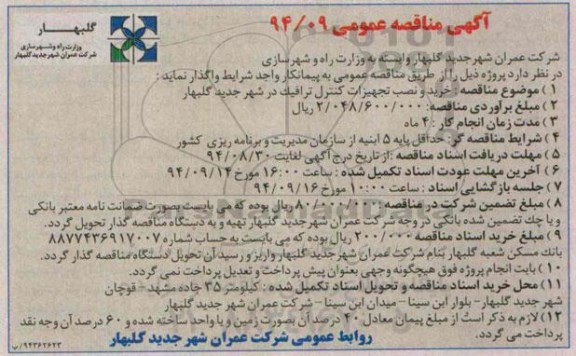 آگهی مناقصه عمومی ۹۴/۰۹
گلبهـــار
وزارت راه و شهرسازی
شرکت عمران شهر جدید گلبهار
شرکت عمران شهر جدید گلبهار وابسته به وزارت راه و شهرسازی
در نظر دارد پروژه ذیل را از طریق مناقصه عمومی به پیمانکار واجد شرایط واگذار نماید :
۱ ) موضوع مناقصه : خرید و نصب تجهیزات کنترل ترافیک در شهر جدید گلبهار
۲ ) مبلغ برآوردی مناقصه: ۲/۰۴۸/۶۰۰/۰۰۰ ریال
۳ ) مدت زمان انجام کار : ۴ ماه
۴ ) شرایط مناقصه گر: حداقل پایه ۵ ابنیه از سازمان مدیریت و برنامه ریزی کشور
۵ ) مهلت دریافت اسناد مناقصه : از تاریخ درج آگهی لغایت ۹۴/۰۸/۳۰
۶ ) آخرین مهلت عودت اسناد تکمیل شده : ساعت ۱۶:۰۰ مورخ ۹۴/۰۹/۱۴
۷ ) جلسه بازگشایی اسناد : ساعت ۱۰:۰۰ مورخ ۹۴/۰۹/۱۶
۸ ) مبلغ تضمین شرکت در مناقصه : ۸۰/۰۰۰/۰۰۰ ریال بوده که می بایست بصورت ضمانت نامه معتبر بانکی
و یا چک تضمین شده بانکی در وجه شرکت عمران شهر جدید گلبهار تهیه و به دستگاه مناقصه گذار تحویل گردد.
۹ ) مبلغ خرید اسناد مناقصه ۲۰۰/۰۰۰ ریال بوده که می بایست به حساب شماره ۸۸۷۷۴۳۶۹۱۷۰۰۷
بانک مسکن شعبه گلبهار بنام شرکت عمران شهر جدید گلبهار واریز و رسید آن تحویل دستگاه مناقصه گذار گردد.
۱۰ ) بابت انجام پروژه فوق هیچگونه وجهی بعنوان پیش پرداخت و تعدیل پرداخت نمی گردد.
۱۱ ) محل خرید اسناد مناقصه و تحویل اسناد تکمیل شده : کیلومتر ۳۵ جاده مشهد - قوچان
شهر جدید گلبهار- بلوار ابن سینا- میدان ابن سینا- شرکت عمران شهر جدید گلبهار
۱۲) لازم به ذکر است از مبلغ پیمان معادل ۴۰ درصد آن بصورت زمین و یا واحد ساخته شده و ۶۰ درصد آن وجه نقد
پرداخت می گردد.
روابط عمومی شرکت عمران شهر جدید گلبهار
۹۴۳۶۲۶۲۳/ب